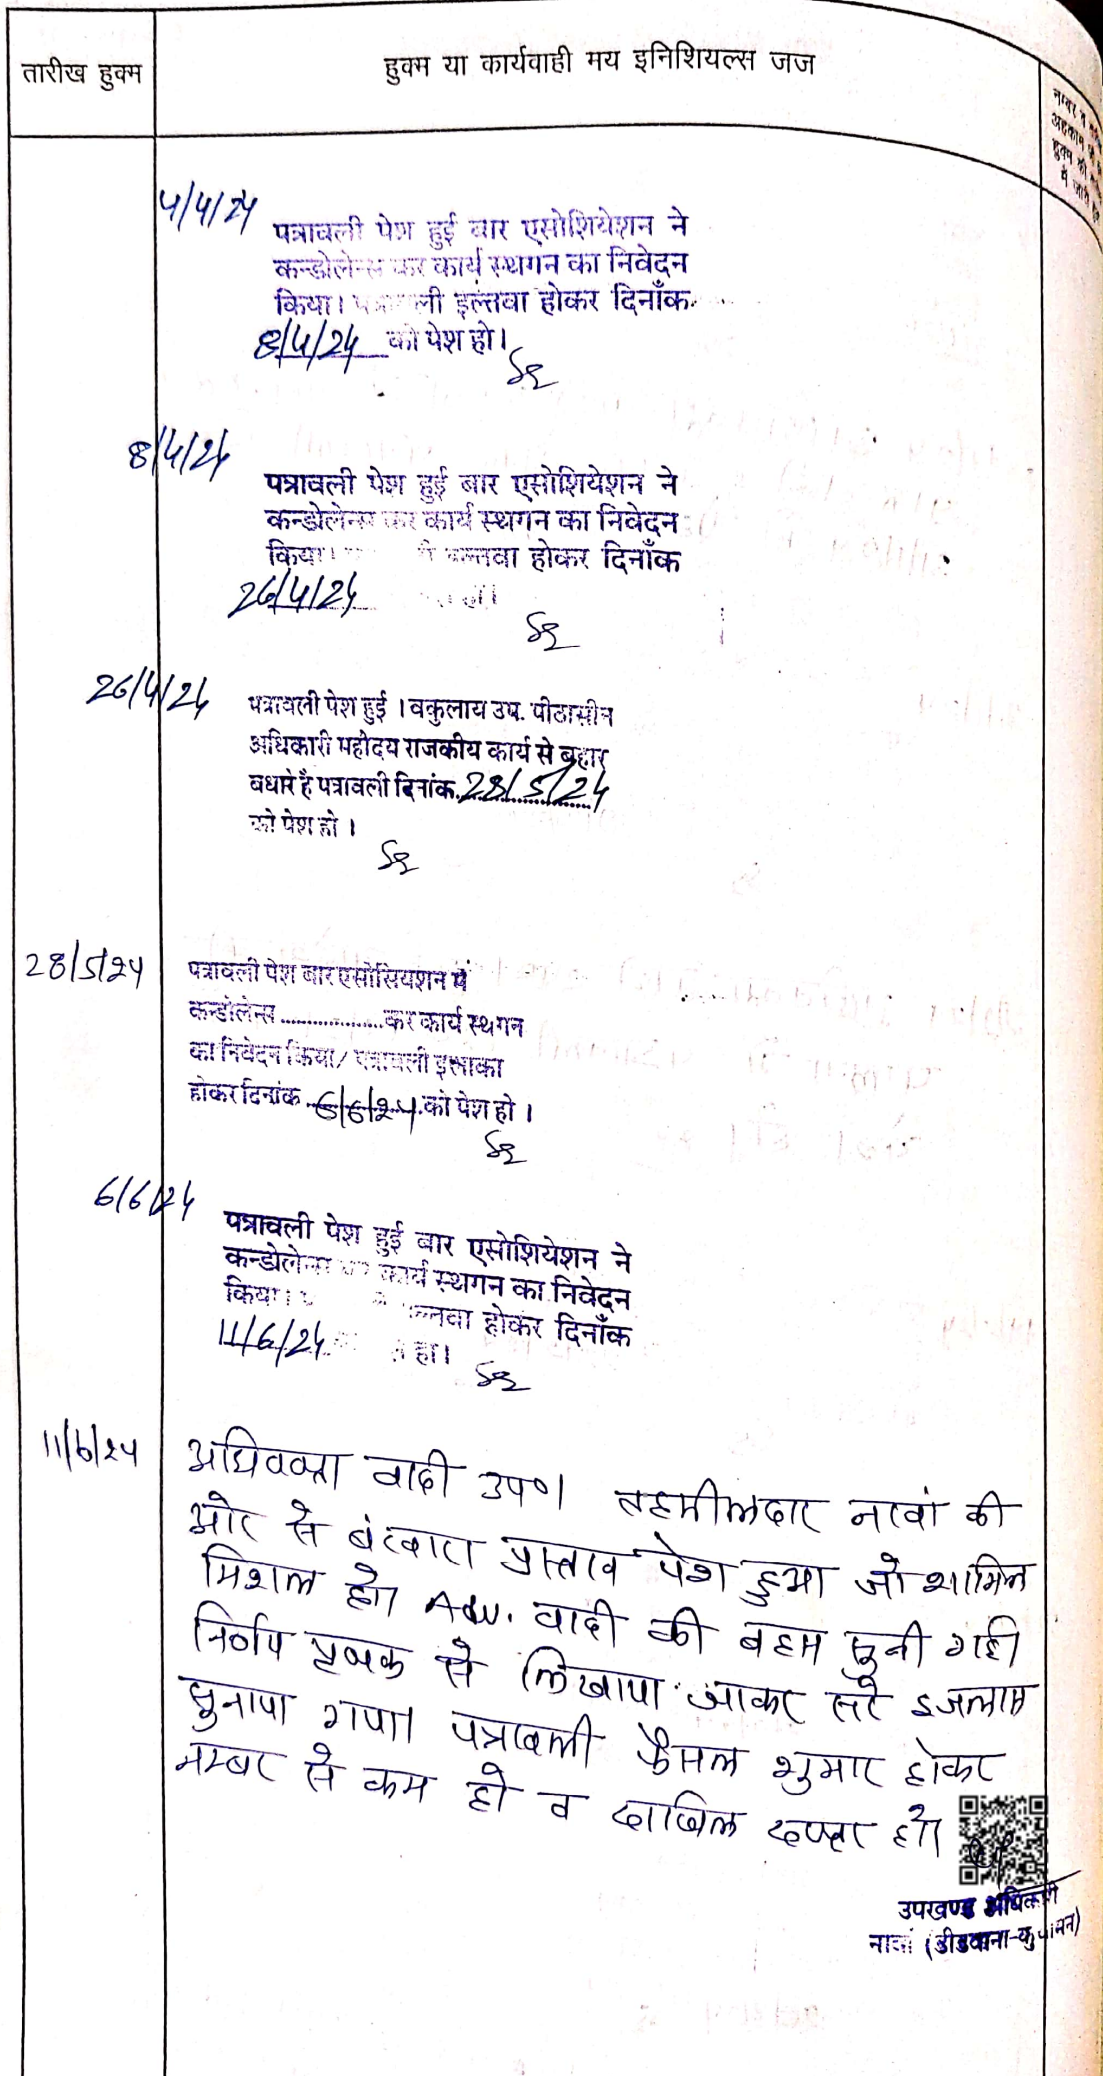 तारीख हुक्म
हुक्म या कार्यवाही मय इनिशियल्स जज
4/4/24
पत्रावली पेश हुई बार एसोशियेशन ने
कन्डोलेन्स कर कार्य स्थगन का निवेदन
किया। पत्रावली इल्तवा होकर दिनाँक
8/4/24 को पेश हो।
8/4/24
पत्रावली पेश हुई बार एसोशियेशन ने
कन्डोलेन्स कर कार्य स्थगन का निवेदन
किया। होकर दिनाँक
26/4/24
26/4/24
पत्रावली पेश हुई । वकुलाय उप. पीठासीन
अधिकारी महोदय राजकीय कार्य से बहार
पधारे है पत्रावली दिनांक 28/5/24
को पेश हो ।
28/5/24
पत्रावली पेश बार एसोसियशन में
कन्डोलेन्स ................. कर कार्य स्थगन
का निवेदन किया/ पत्रावली इलाका
होकर दिनांक 6/6/24 को पेश हो ।
6/6/24
पत्रावली पेश हुई बार एसोशियेशन ने
कन्डोलेन्स कर कार्य स्थगन का निवेदन
किया। होकर दिनाँक
11/6/24 हो।
11/6/24
अधिवक्ता वादी उप०। तहसीलदार नावां की
ओर से बंटवारा प्रस्ताव पेश हुआ जो शामिल
मिशल हो। Adv. वादी की बहस सुनी गही
निर्णय पृथक से लिखाया जाकर सरे इजलास
सुनाया गया। पत्रावली फैसल शुमार होकर
नम्बर से कम हो व दाखिल दफ्तर हो।
उपखण्ड अधिकारी
नावां (डीडवाना-कुचामन)